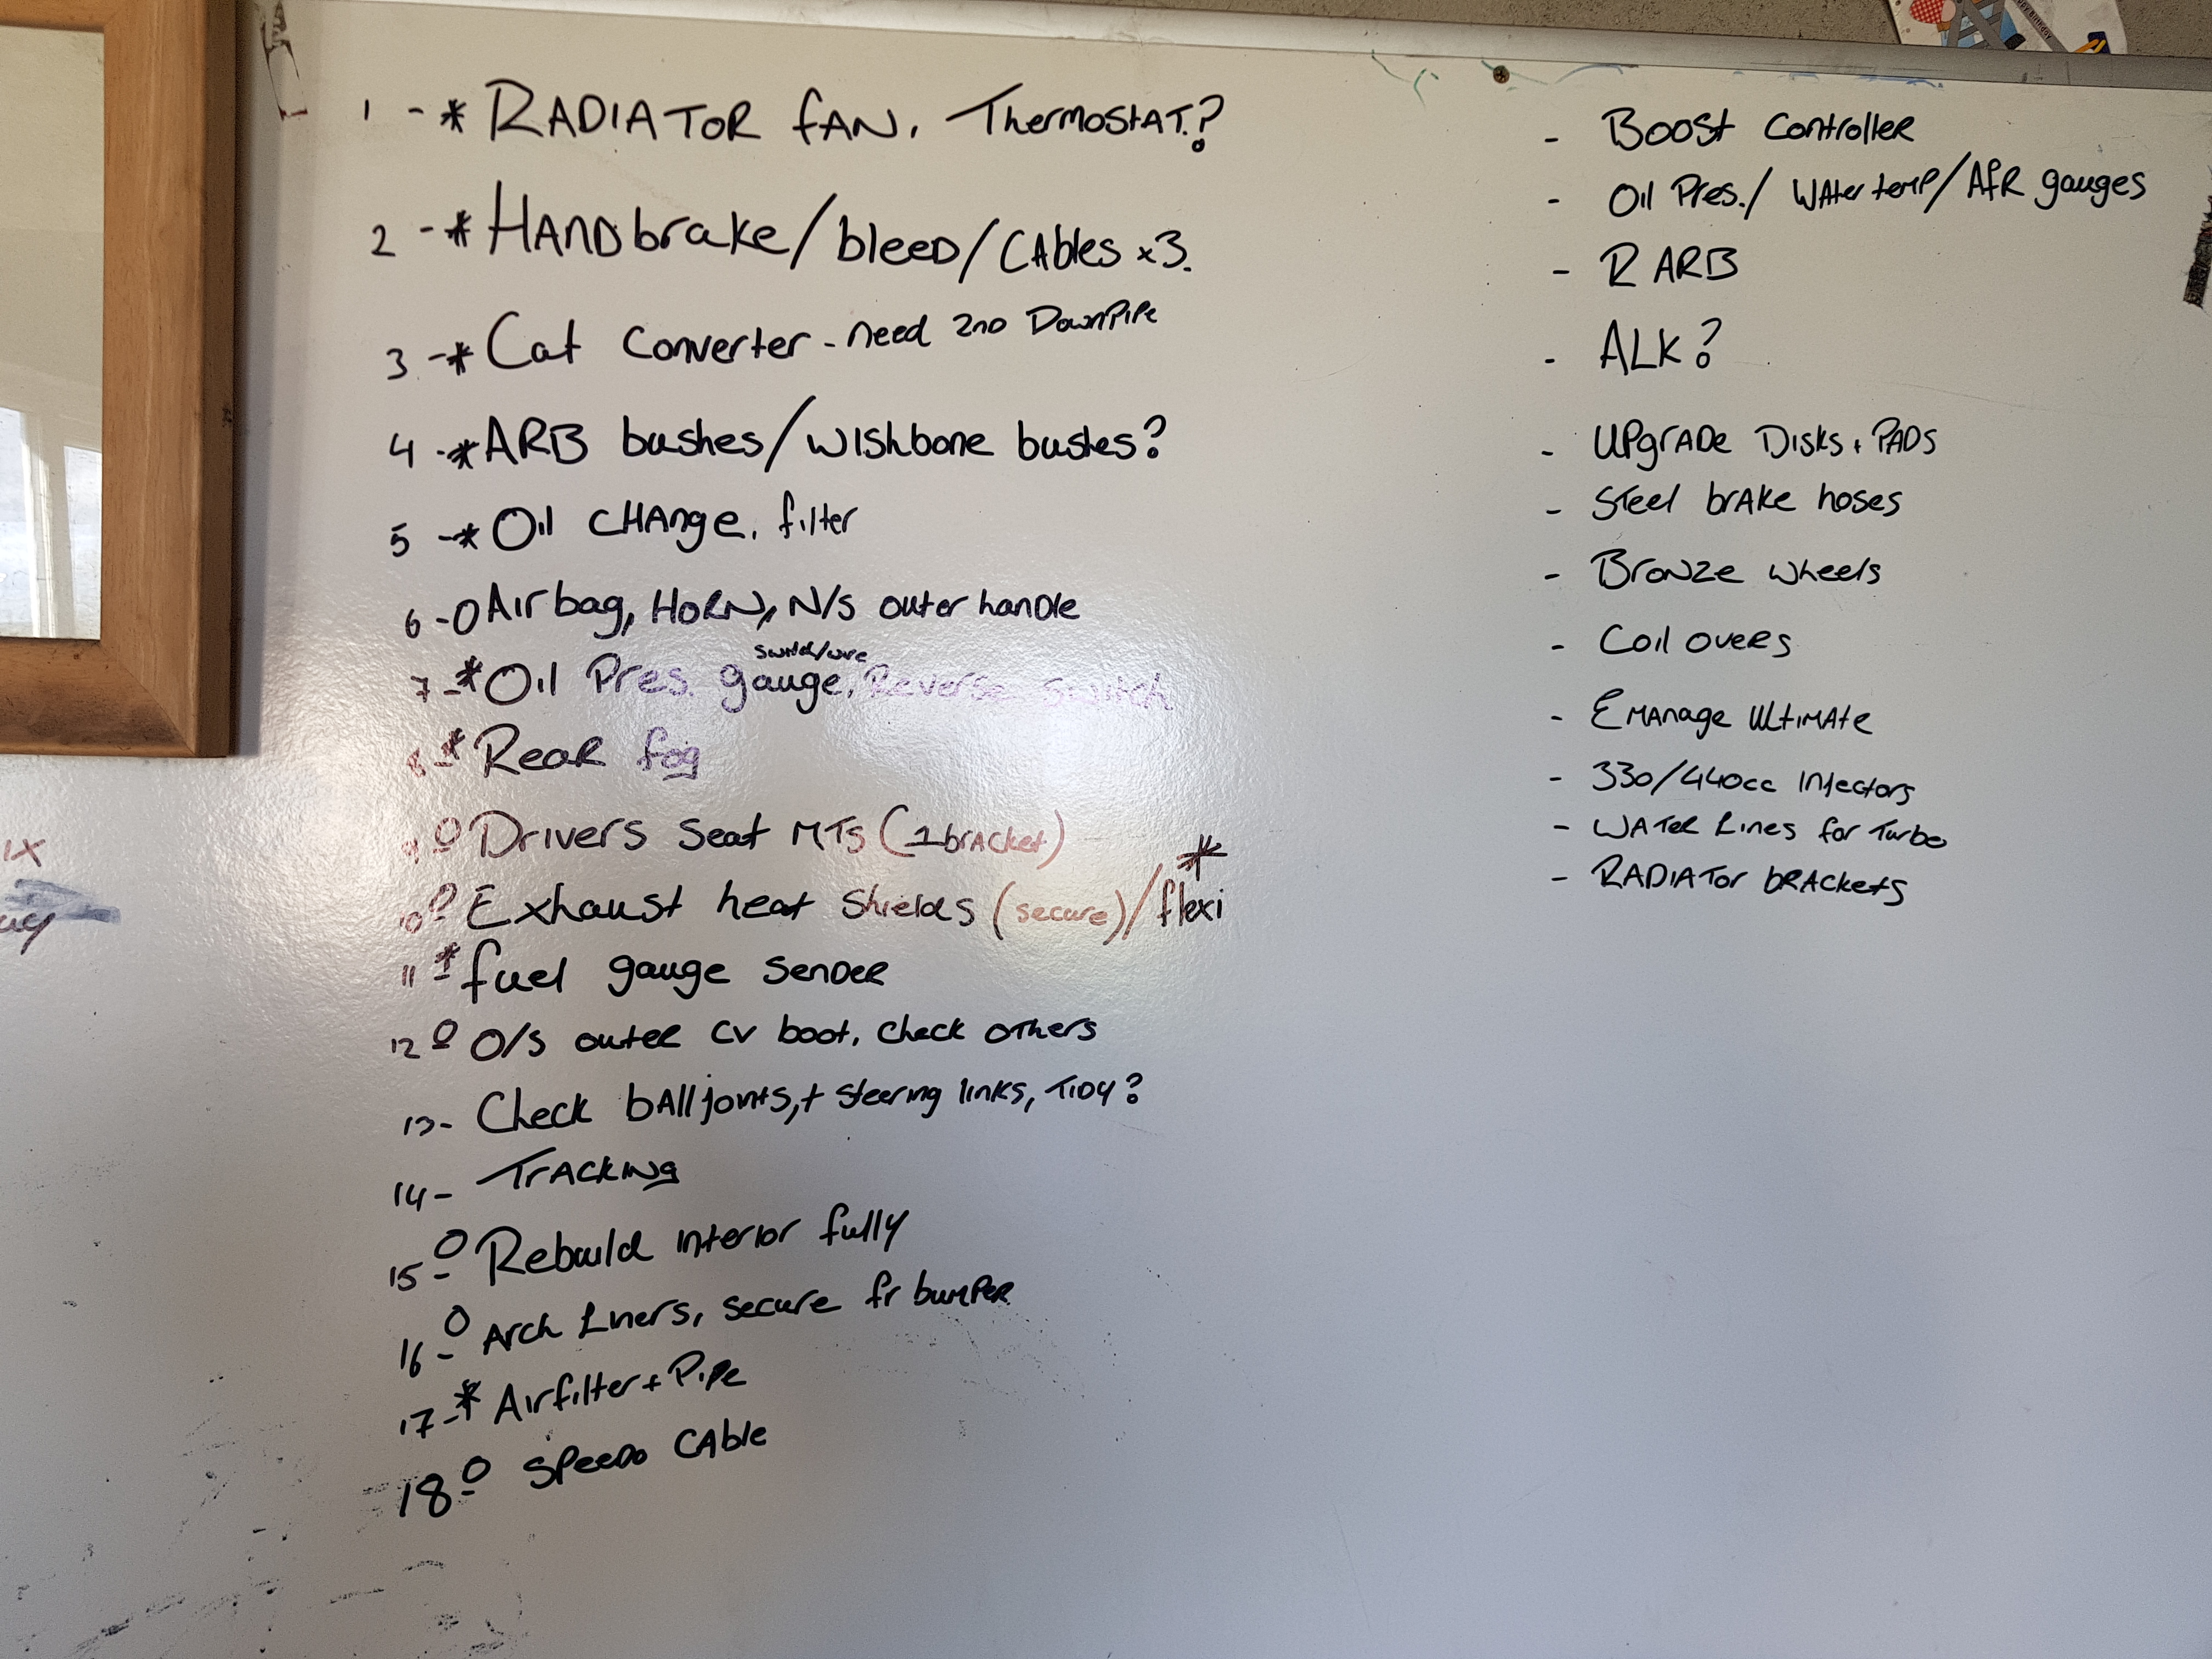 1 - * RADIATOR fAN, ThermostAT.?
2 - * HANDbrake/bleed/CAbles x3.
3 - * Cat Converter - need 2nd DownPiPe
4 - * ARB bushes/wishbone bushes?
5 - * Oil CHAnge, filter
6 - O Airbag, HORN, N/S outer handle
switch/wire
7 - * Oil Pres. gauge, Reverse switch
8 - * Rear fog
9 - O Drivers seat MTs (1 brAcket)
*
10 - O Exhaust heat shields (secure)/flexi
11 - * fuel gauge sender
12 - O O/S outer CV boot, check others
13 - Check bAlljoints,+ steering links, TiDy?
14 - TrAcking
15 - O Rebuild interior fully
16 - O Arch Liners, secure fr bumPer
17 - * Airfilter + PiPe
18 - O SPeedo CAble
- Boost Controller
- Oil Pres./ WAter temp/AfR gauges
- R ARB
- ALK?
- UPgrADe Disks + PADS
- Steel brAke hoses
- Bronze wheels
- Coil overs
- EmAnage UltimAte
- 330/440cc Injectors
- WATer Lines for Turbo
- RADiATor brAckets
ix